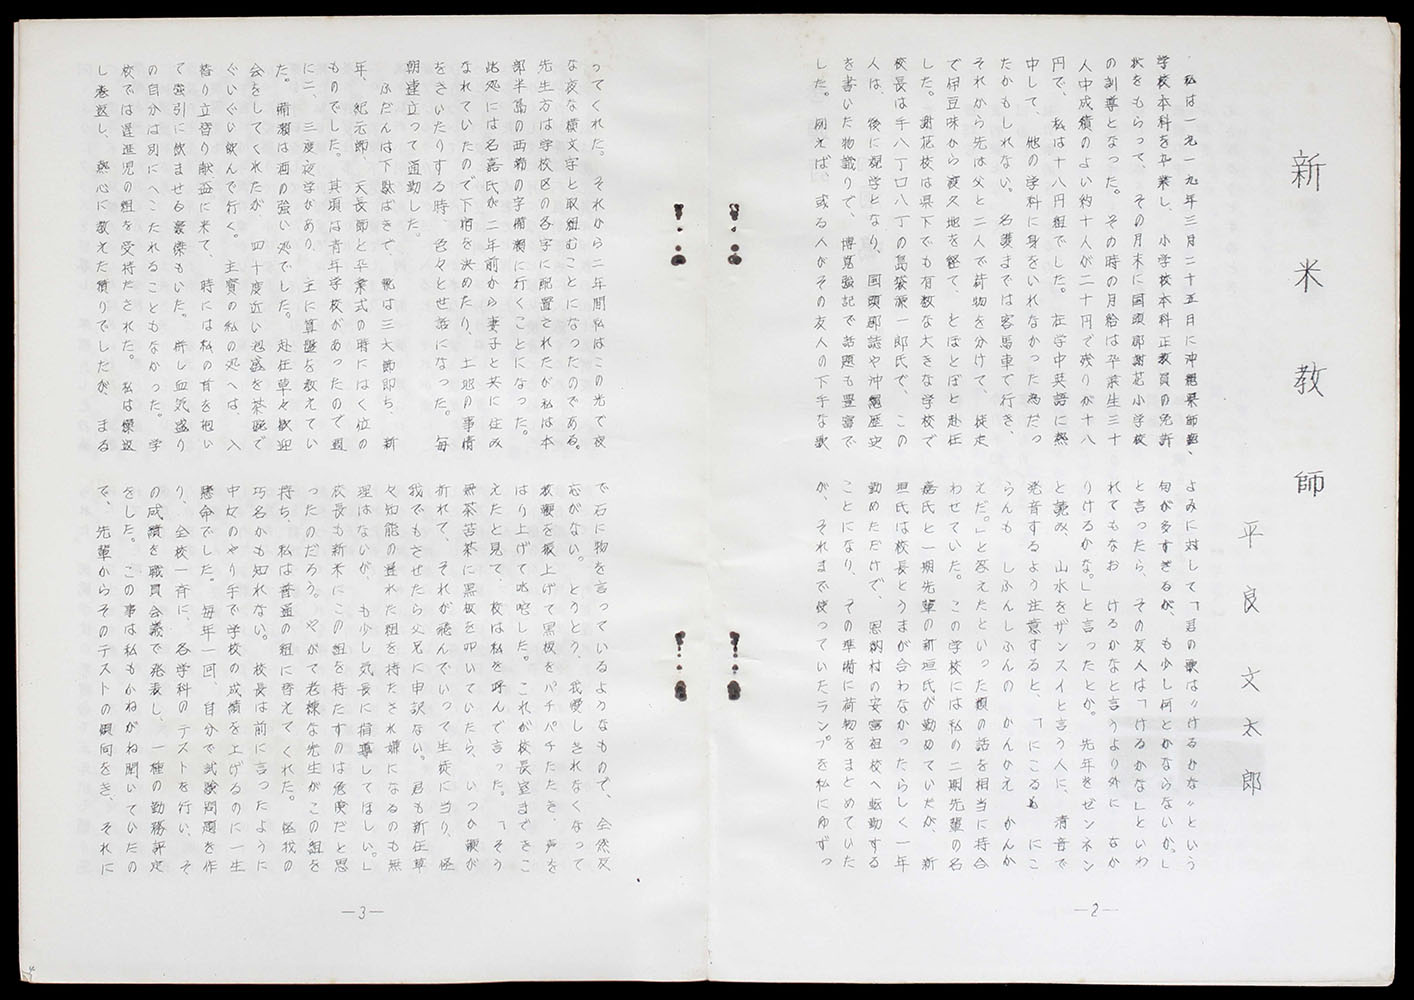 新米教師
平良文太郎
私は一九一九年三月二十五日に沖縄県師範、
学校本科を卒業し、小学校本科正教員の免許
状をもらって、その月末に国頭郡謝花小学校
の訓導となった。その時の月給は卒業生三十
人中成績のよい約十人が二十円で残りが十八
円で、私は十八円組でした。在学中英語に熱
中して、他の学科に身をいれなかった為だっ
たかもしれない。名護までは客馬車で行き、
それから先は父と二人で荷物を分けて、徒走
で伊豆味から渡久地を経て、とぼとぼと赴任
した。謝花校は県下でも有数な大きな学校で
校長は千八丁口八丁の島袋源一郎氏で、この
人は、後に視学となり、国頭郡誌や沖縄歴史
を書いた物識りで、博覧強記で話題も豊富で
した。例えば、或る人がその友人の下手な歌
よみに対して「君の歌は〃けるかな〃という
句が多すぎるが、も少し何とかならないか。」
と言ったら、その友人は「けるかなしといわ
れてもなお けるかなと言うより外に なか
りけるかな。」と言ったとか。先年をゼンネン
と読み、山水をザンスイと言う人に、清音で
発音するよう注意すると、「にこるも にこ
らんも しふんしふんの かんかえ かんか
えだ。」と答えたといった類の話を相当に持合
わせていた。この学校には私の二期先輩の名
嘉氏と一期先輩の新垣氏が勤めていたが、新
垣氏は校長とうまが合わなかったらしく一年
勤めただけで、恩納村の安富祖校へ転勤する
ことになり、その準備に荷物をまとめていた
が、それまで使っていたランプを私にゆずっ
—2—
ってくれた。それから二年間私はこの光で夜
な夜な横文字と取組むことになったのである。
先生方は学校区の各字に配置されたが私は本
部半島の西端の字備瀬に行くことになった。
此処には名嘉氏が二年前から妻子と共に住み
なれていたので下宿を決めたり、土地の事情
をきいたりする時、色々とせ話になった。毎
朝連立って通勤した。
ふだんは下駄ばきで、靴は三大節即ち、新
年、紀元節、天長節と卒業式の時にはく位の
ものでした。其頃は青年学校があったので週
に二、三度夜学があり、主に算盤を教えてい
た。備瀬は酒の強い処でした。赴任草々歓迎
会をしてくれたが、四十度近い泡盛を茶碗で
ぐいぐい飲んで行く。主賓の私の処へは、入
替り立替り献盃に来て、時には私の首を抱い
て強引に飲ませる豪傑もいた。併し血気盛り
の自分は別にへこたれることもなかった。学
校では遅進児の組を受持たされた。私は繰返
し巻返し、熱心に教えた積りでしたが、まる
で石に物を言っているようなもので、全然反
応がない。とうとう、我愛しきれなくなって
教鞭を振上げて黒板をパチパチたたき、声を
はり上げて叱咤した。これが校長室まできこ
えたと見て、校は私を呼んで言った。「そう
無茶苦茶に黒板を叩いていたら、いつか鞭が
折れて、それが飛んでいって生徒に当り、怪
我でもさせたら父兄に申訳ない。君も新任草
々知能の遅れた組を持たされ嫌になるのも無
理はないが、も少し気長に指導してほしい。」
校長も新米にこの組を持たすのは危険だと思
ったのだろう。やがて老練な先生がこの組を
持ち、私は普通の組に替えてくれた。怪我の
巧名かも知れない。校長は前に言ったように
中々のやり手で学校の成績を上げるのに一生
懸命でした。毎年一回、自分で試験問題を作
り、全校一斉に、各学科のテストを行い、そ
の成績を職員会議で発表し、一種の勤務評定
をした。この事は私もかねがね聞いていたの
で、先輩からそのテストの傾向をきき、それに
—3—